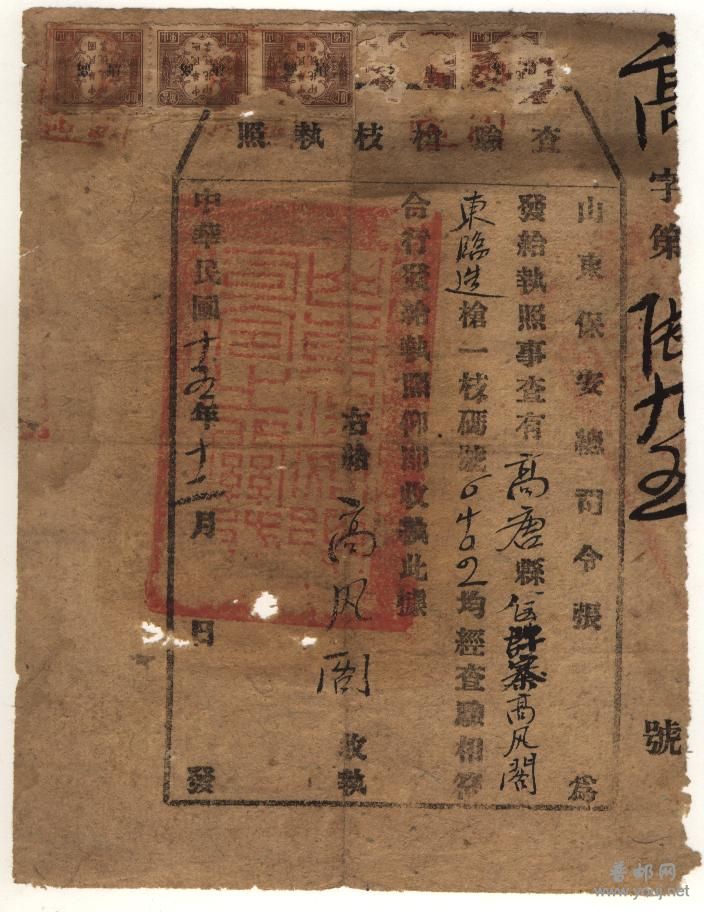 查驗槍枝執照
高字第 陆九五 號
山東保安總司令張 為
發給執照事查有高唐縣 高风閣
東臨造槍一枝碼號 均經查驗相符
合行發給執照仰即收執此據
右給 高风阁 收執
中華民國十五年十二月 日 發
普邮网
www.youj.net